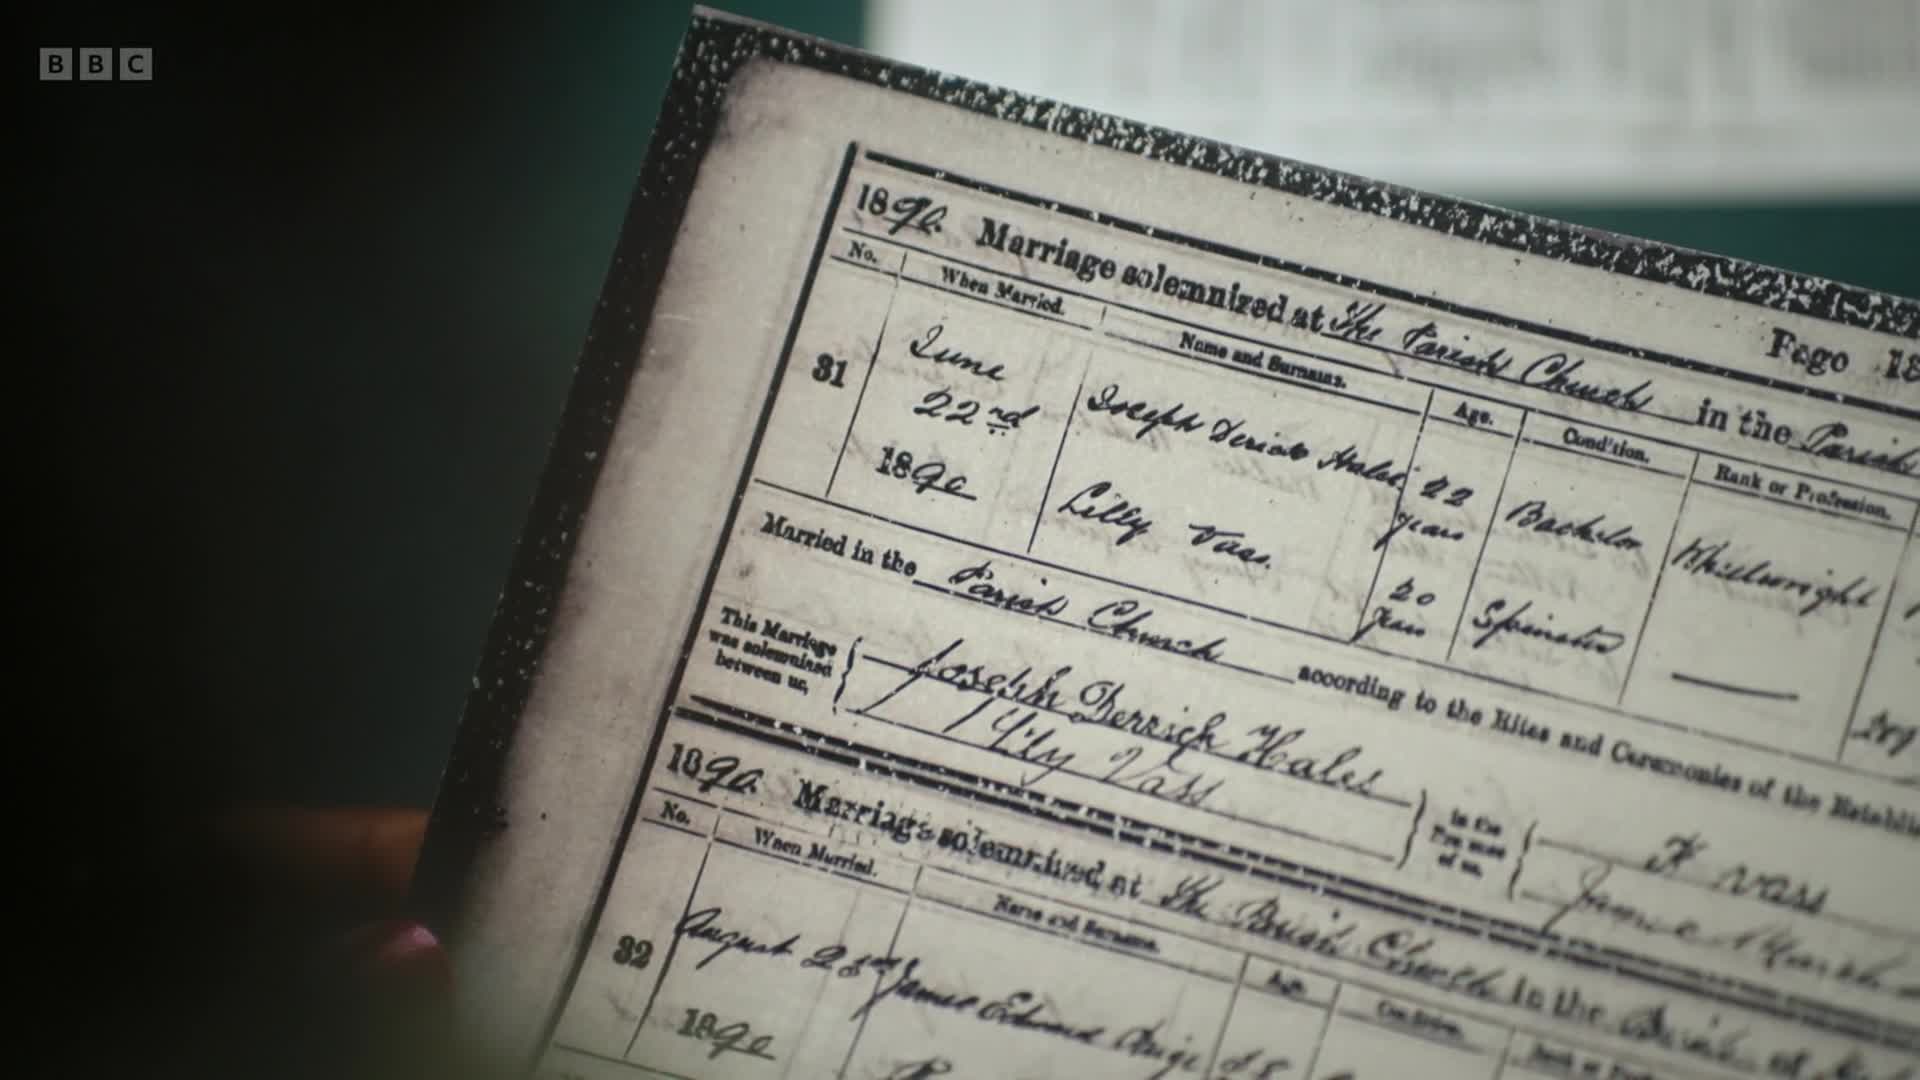 BBC
1890. Marriage solemnized at The Parish Church in the Parish
Page 18
No. When Married. Name and Surname. Age. Condition. Rank or Profession.
31 June 22nd 1890 Joseph Derrick Hales 22 years Bachelor Millwright
Lilly Vass. 20 years Spinster
Married in the Parish Church according to the Rites and Ceremonies of the
This Marriage was solemnized between us,
Joseph Derrick Hales
Lily Vass
in the Presence of us,
Vass
James
1890. Marriage solemnized at The Parish Church in the Parish of
No. When Married. Name and Surname. Age. Condition.
32 August 23rd 1890 James Edward